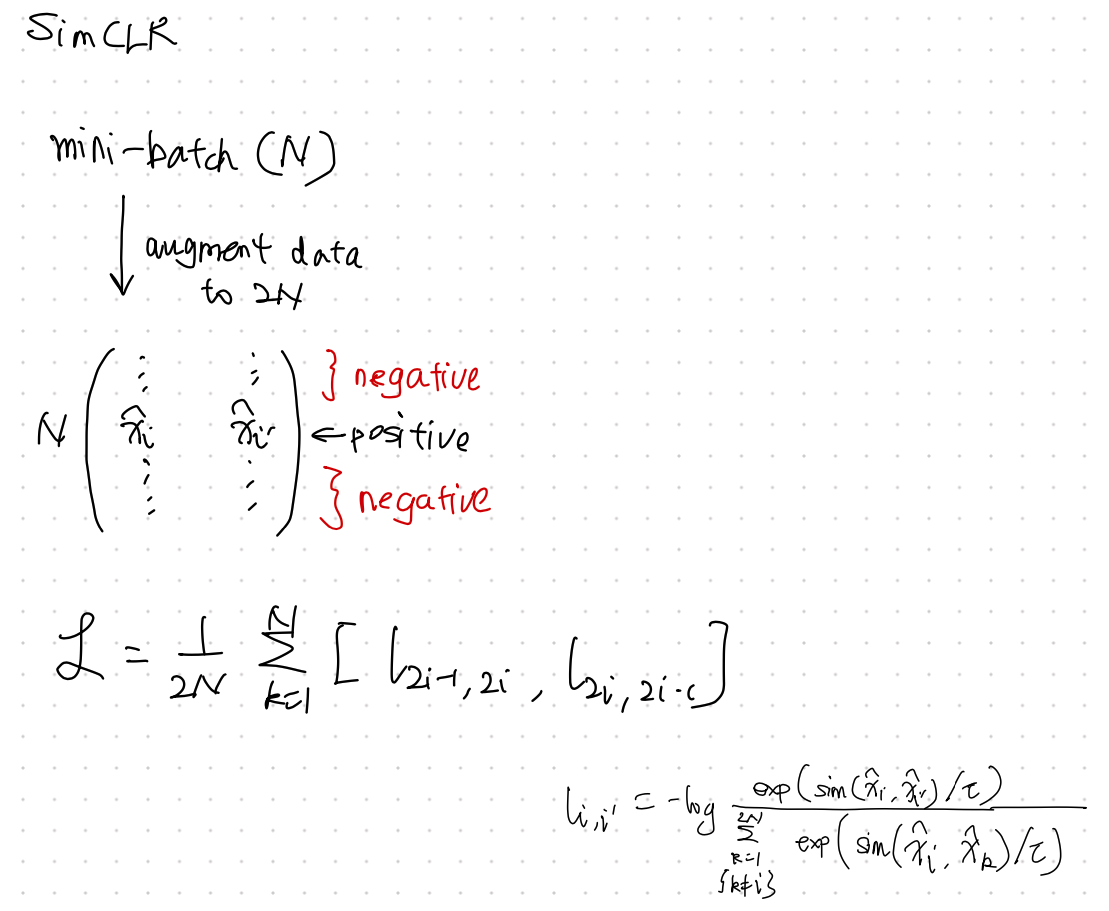 SimCLR
mini-batch (N)
augment data
to 2N
} negative
N ( x̂_i x̂_i' ) ← positive
} negative
ℒ = 1/2N ∑_{k=1}^{N} [ l_{2i-1, 2i} , l_{2i, 2i-1} ]
l_{i,i'} = -log exp(sim(x̂_i, x̂_i')/τ) / ∑_{k=1 {k≠i}}^{2N} exp(sim(x̂_i, x̂_k)/τ)